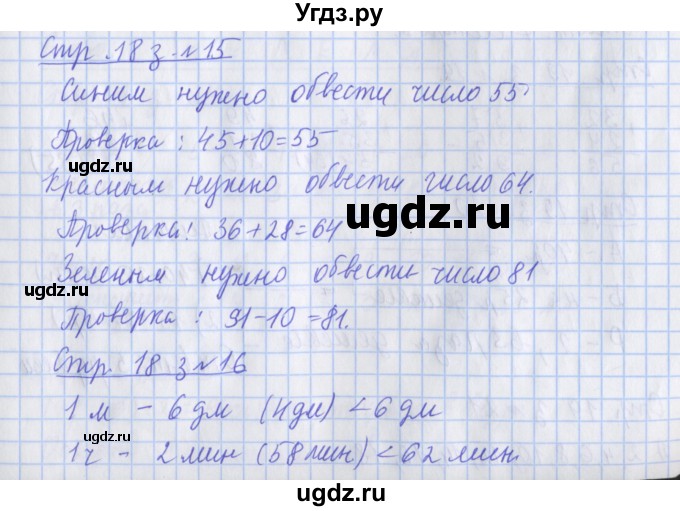 Угдз.ру
Стр. 18 з №15
Синим нужно обвести число 55
Проверка: 45+10=55
Красным нужно обвести число 64.
Проверка! 36+28=64
Зеленым нужно обвести число 81
Проверка: 91-10=81.
Стр. 18 з №16
1 м - 6 дм (4дм) < 6 дм
1ч - 2 мин (58 мин) < 62 мин.
ugdz.ru
ugdz.ru
ugdz.ru
ugdz.ru
ugdz.ru
ugdz.ru